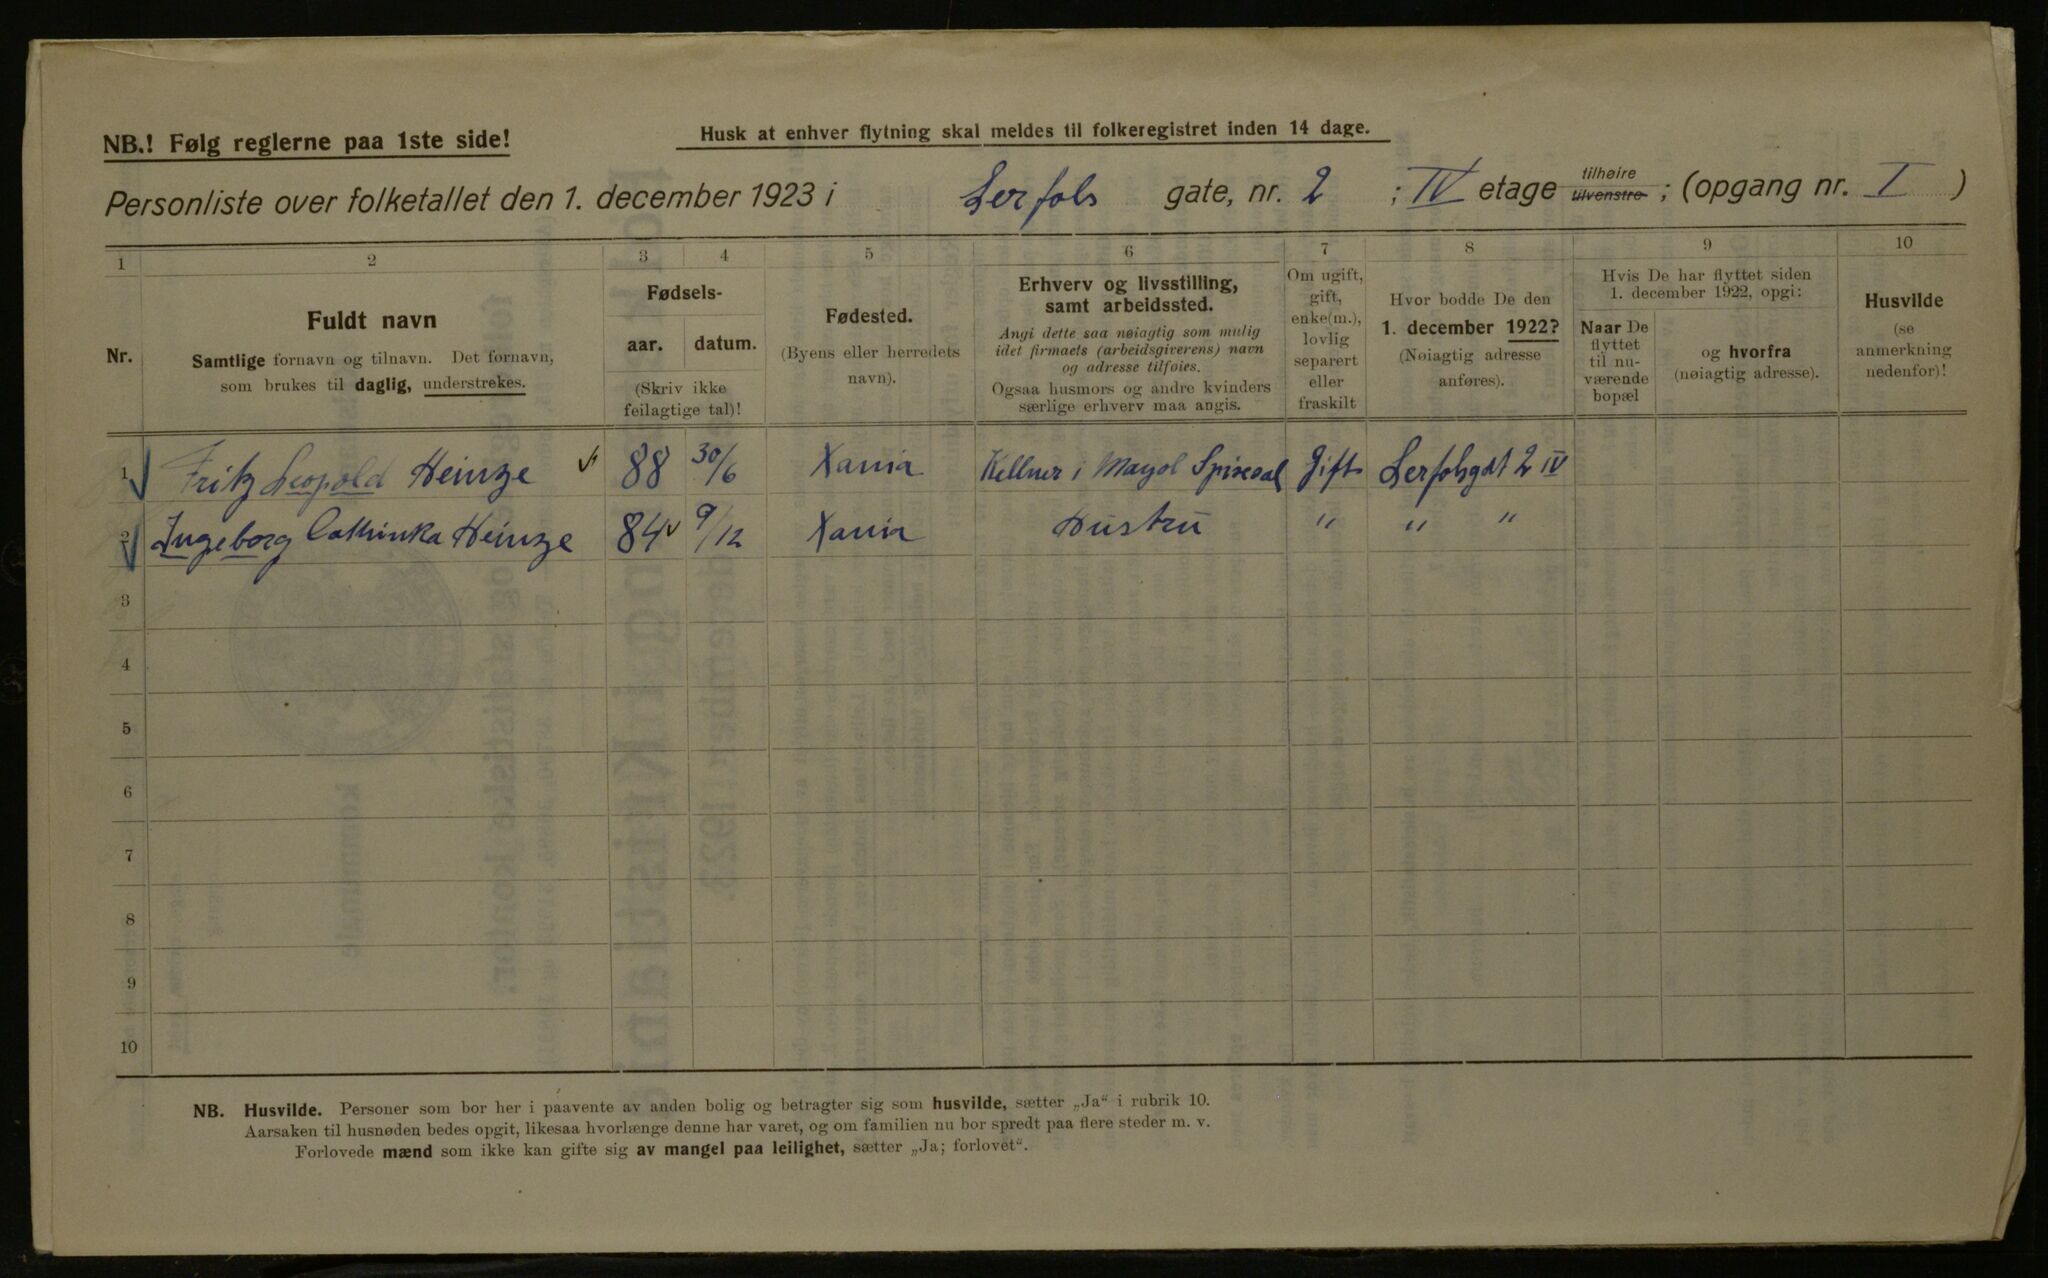 NB.! Følg reglerne paa 1ste side!
Husk at enhver flytning skal meldes til folkeregistret inden 14 dage.
Personliste over folketallet den 1. december 1923 i Lerfols gate, nr. 2 ; IV etage tilhøire tilvenstre ; (opgang nr. I )
1 2 3 4 5 6 7 8 9 10
Nr.
Fuldt navn
Samtlige fornavn og tilnavn. Det fornavn,
som brukes til daglig, understrekes.
Fødsels-
aar. datum.
(Skriv ikke
feilagtige tal)!
Fødested.
(Byens eller herredets
navn).
Erhverv og livsstilling,
samt arbeidssted.
Angi dette saa nøiagtig som mulig
idet firmaets (arbeidsgiverens) navn
og adresse tilføies.
Ogsaa husmors og andre kvinders
særlige erhverv maa angis.
Om ugift,
gift,
enke(m.),
lovlig
separert
eller
fraskilt
Hvor bodde De den
1. december 1922?
(Nøiagtig adresse
anføres).
Hvis De har flyttet siden
1. december 1922, opgi:
Naar De
flyttet
til nu-
værende
bopæl
og hvorfra
(nøiagtig adresse).
Husvilde
(se
anmerkning
nedenfor)!
1 Fritz Leopold Heinze 88 30/6 Xania Kellner i Mayol Spisesal Gift Lerfolsgat 2 IV
2 Ingeborg Cathinka Heinze 84 9/12 Xania Hustru " " "
3
4
5
6
7
8
9
10
NB. Husvilde. Personer som bor her i paavente av anden bolig og betragter sig som husvilde, sætter „Ja“ i rubrik 10.
Aarsaken til husnøden bedes opgit, likesaa hvorlænge denne har varet, og om familien nu bor spredt paa flere steder m. v.
Forlovede mænd som ikke kan gifte sig av mangel paa leilighet, sætter „Ja; forlovet“.